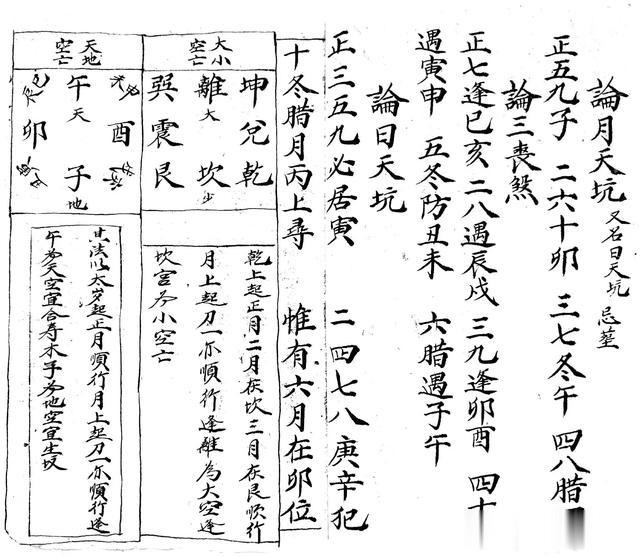 論月天坑 又名日天坑 忌塟
正五九子 二六十卯 三七冬午 四八腊
論三喪煞
正七逢巳亥 二八遇辰戌 三九逢卯酉 四十
遇寅申 五冬防丑未 六腊遇子午
論日天坑
正三五九必居寅 二四七八庚辛犯
十冬腊月丙上尋 惟有六月在卯位
大小空亡
坤兌乾
離大 坎少
巽震艮
乾上起正月二月在坎三月在艮順行
月上起刀一亦順行逢離為大空逢
坎宮為小空亡
天地空亡
酉
午天 子地
卯
其法以太岁起正月順行月上起刀一亦順行逢
午為天空宜合寿木子為地空宜生坟